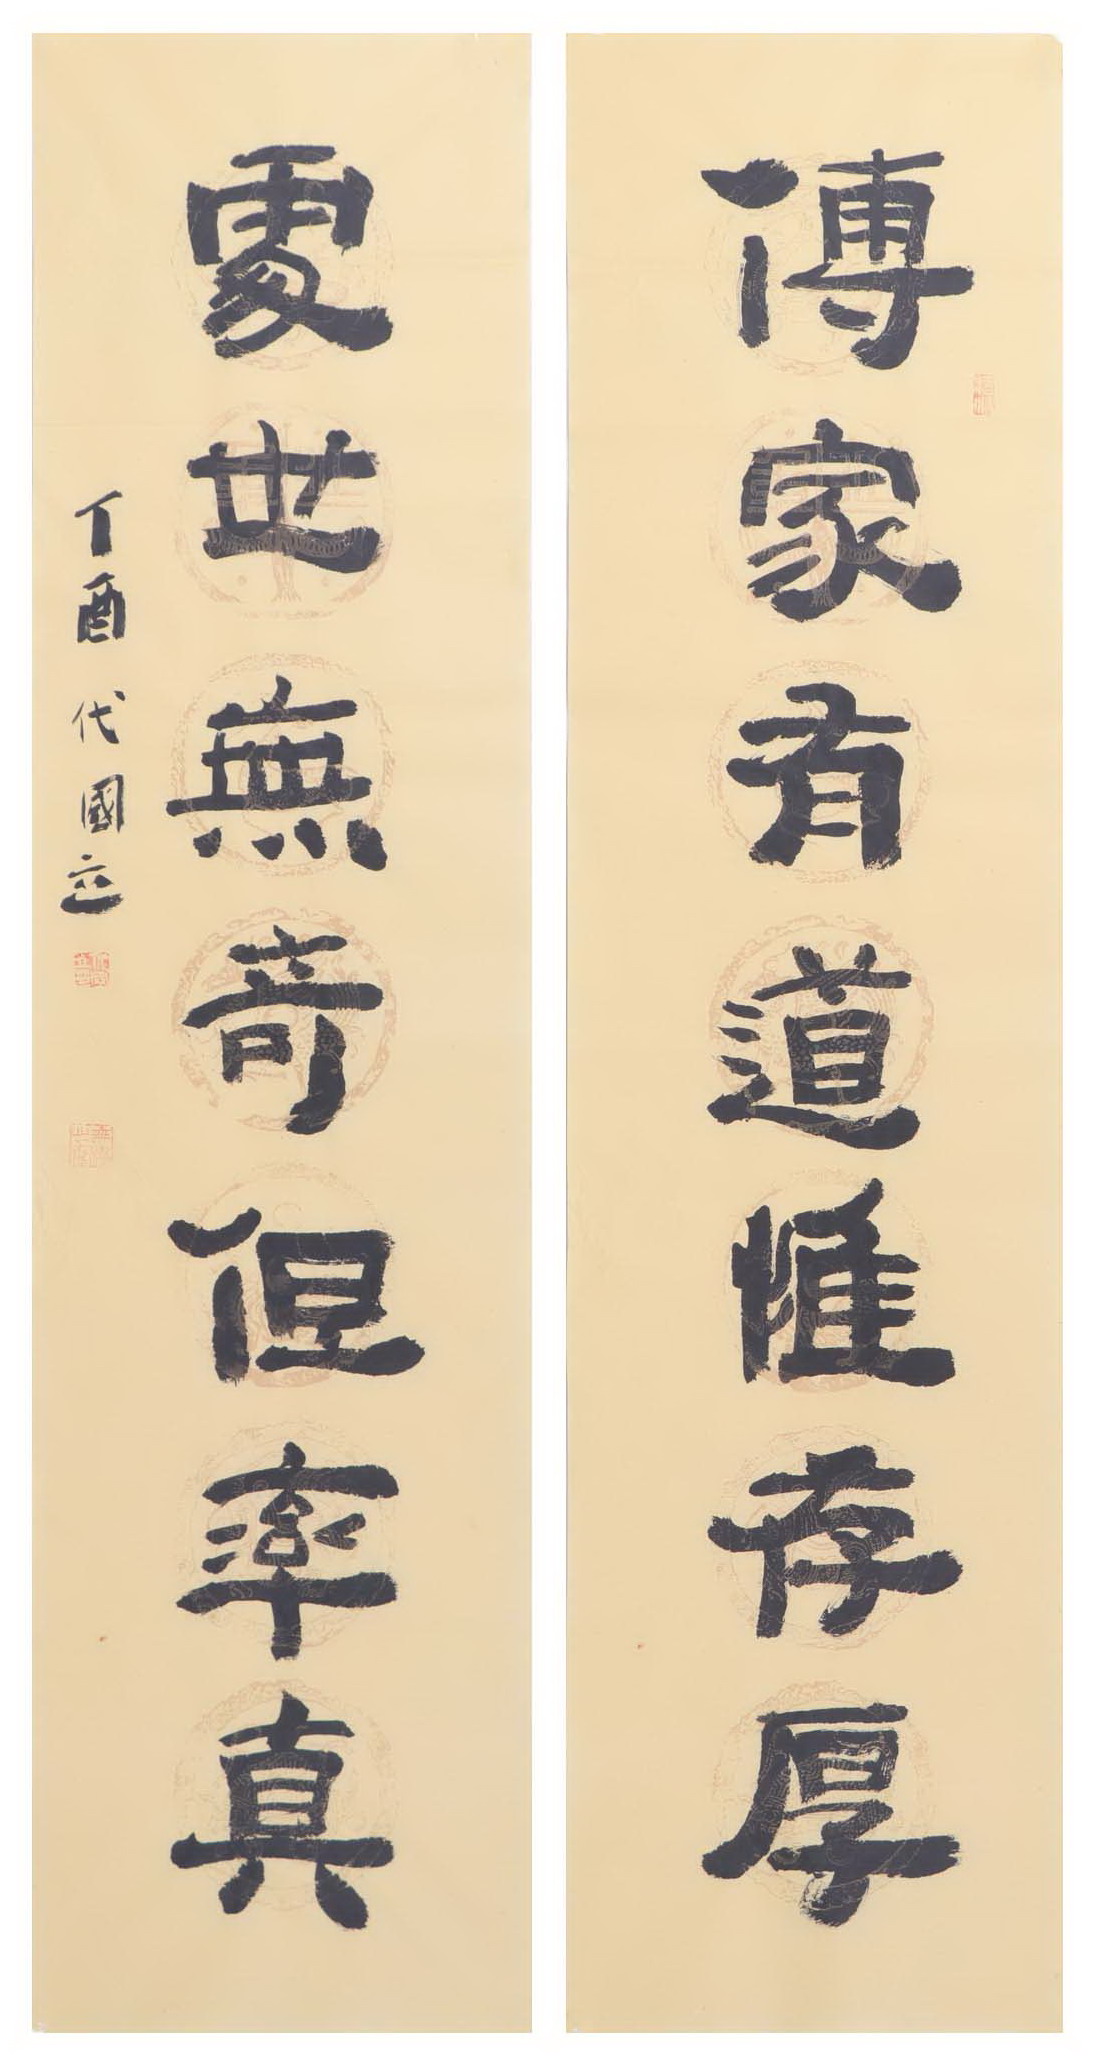 傳家有道惟存厚
處世無奇但率真
丁酉 代國立